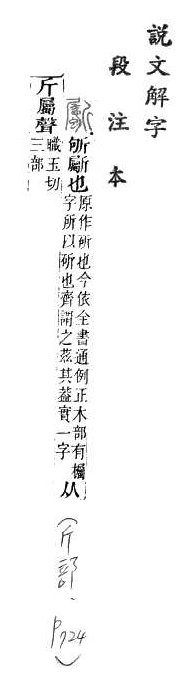 說文解字
段注本
斸 斫斸也原作所也今依全書通例正木部有欘
字所以斫也齊謂之茲其葢實一字 从
斤屬聲 陟玉切
三部
(斤部.
P724)